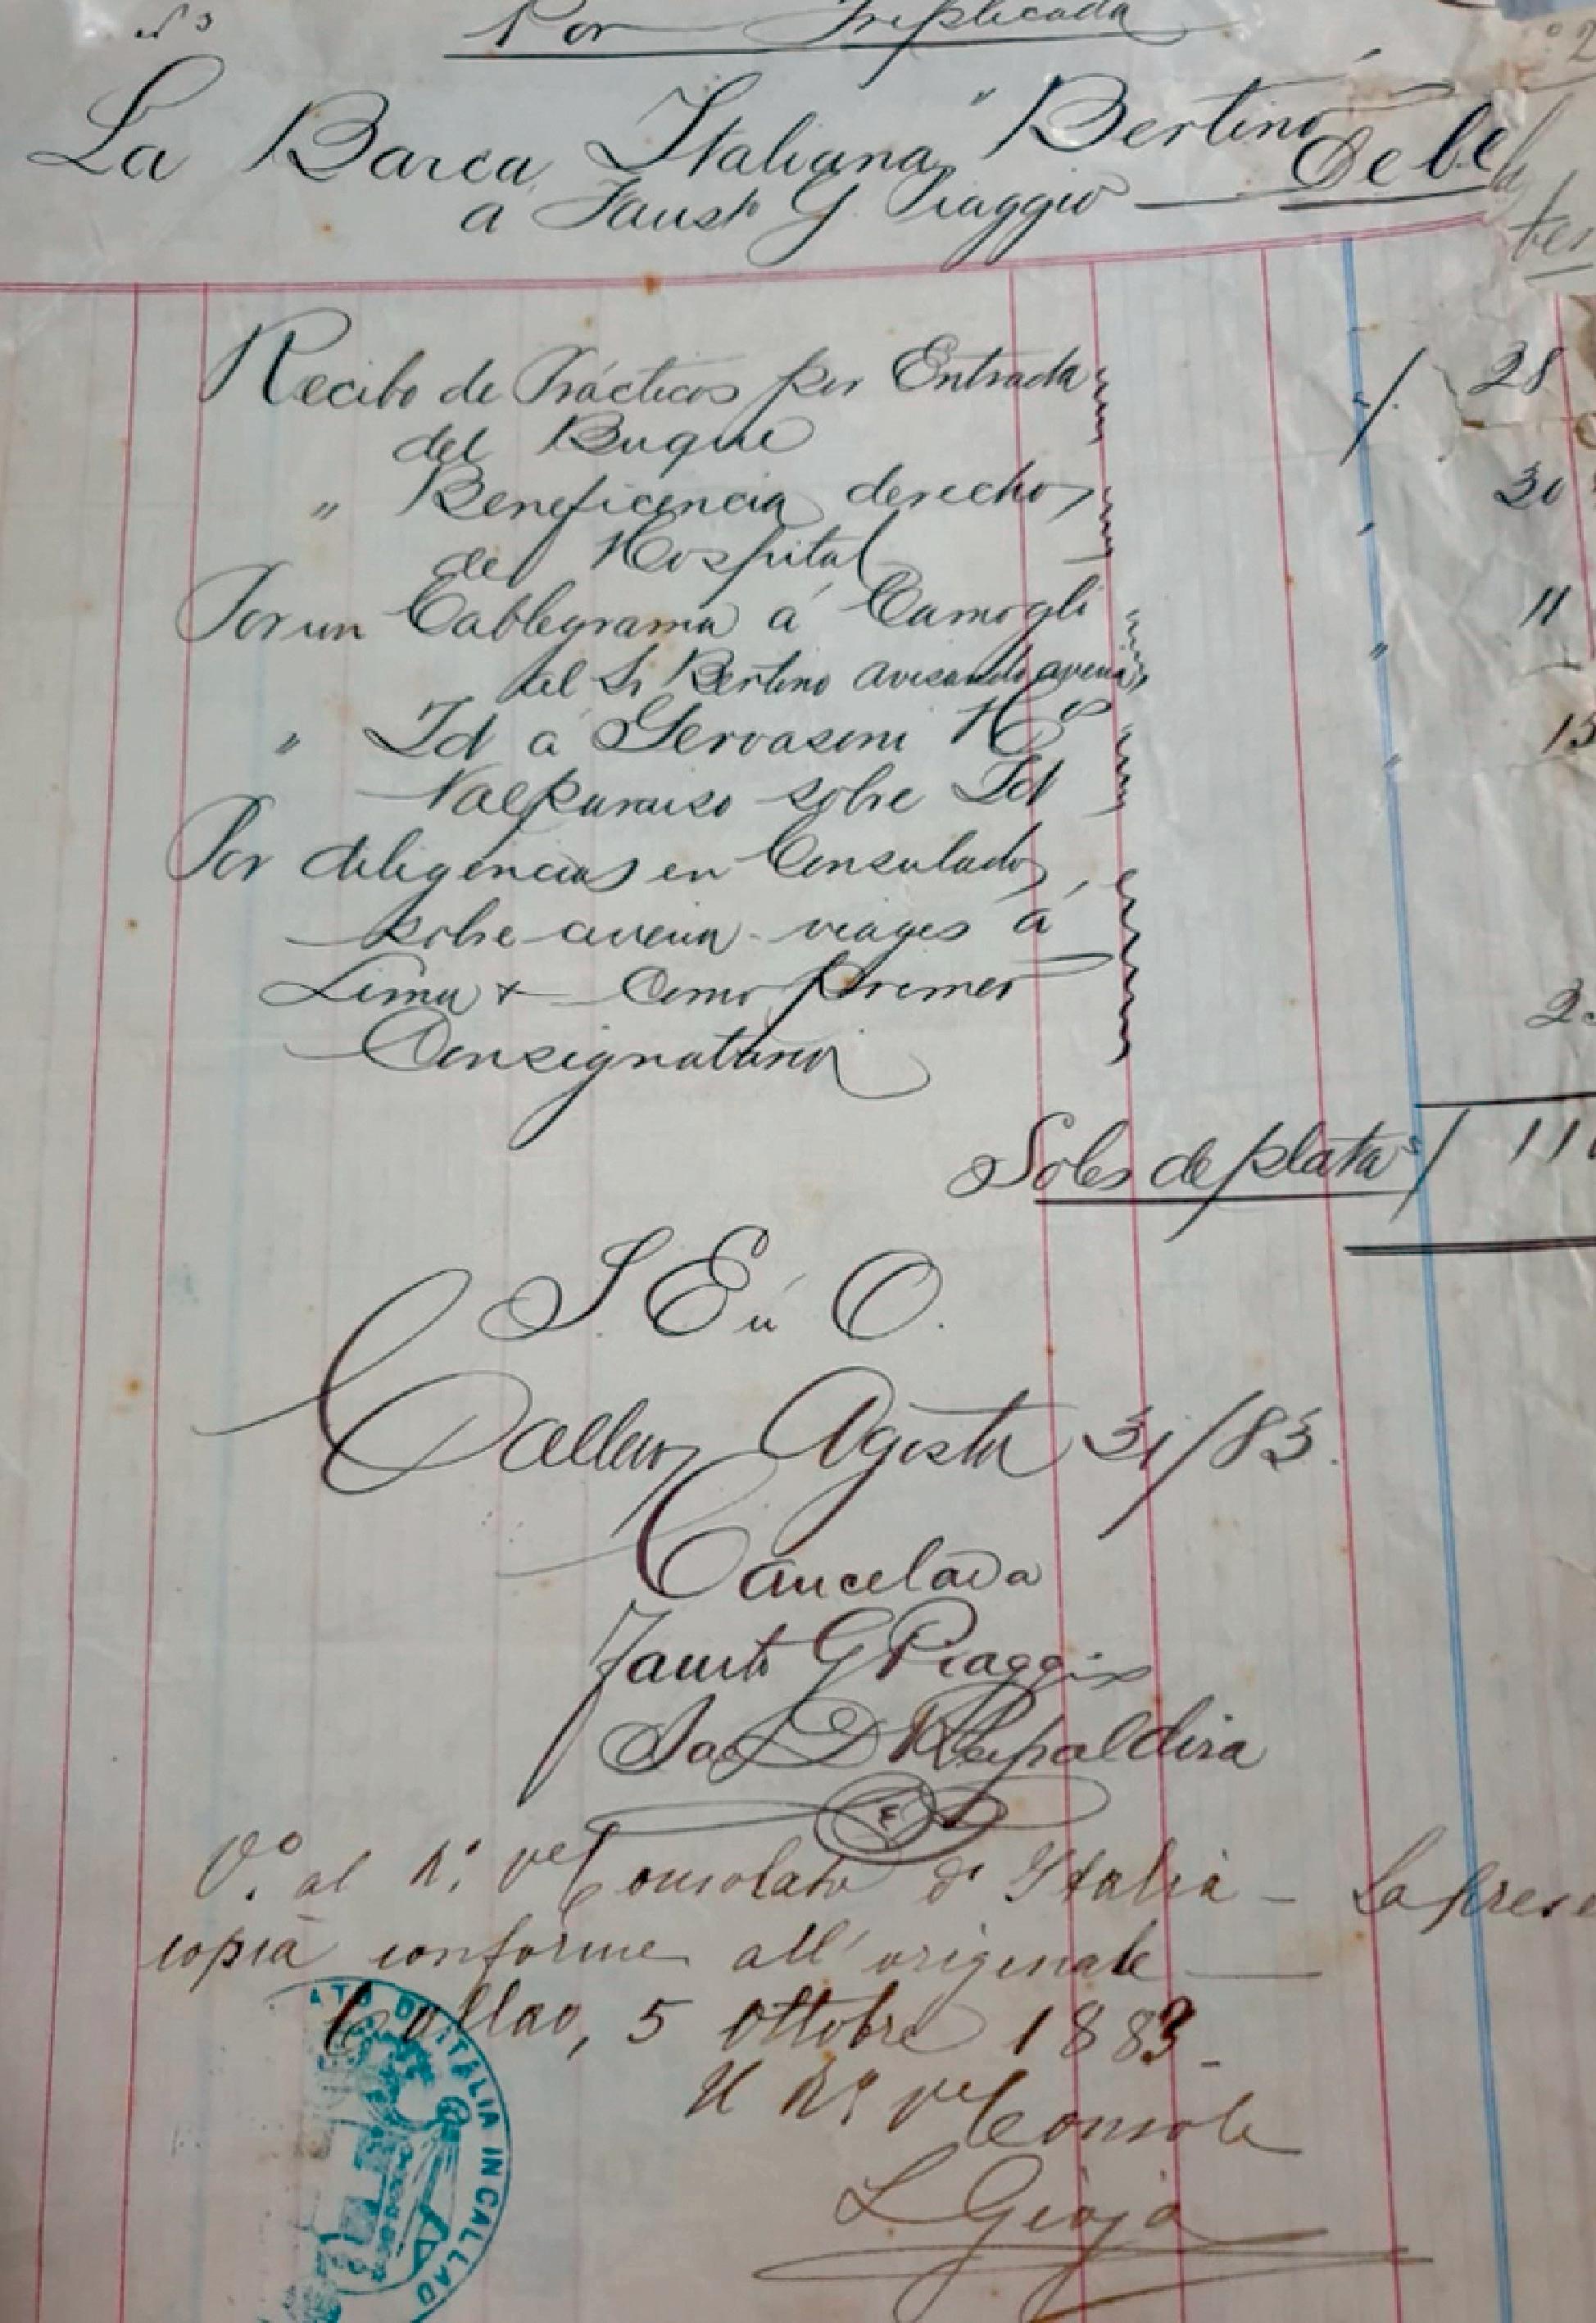 Nº 3 Por Triplicada
La Barca Italiana "Bertino" Debe
a Fausto G. Piaggio
Recibo de Prácticos por Entrada S/. 28
del Buque
" Beneficencia derechos " 30
de Hospital
Por un Cablegrama á Camogli " 11
al Sr Bertino avisando averia
" Id a Gervasoni Hos " 13
Valparaiso sobre Id
Por diligencias en Consulado
sobre averia viages á
Lima + Como primer
Consignatario 2
Soles de plata S/ 11
S. E ú O.
Callao Agosto 31/83.
Cancelada
Fausto G Piaggio
Vº. al Rº. Vce Consolato d'Italia - La pres
copia conforme all'originale
Callao, 5 Ottobre 1883.
Il Rº Vce Console
L Gioja
ATO D'ITALIA IN CALLAO